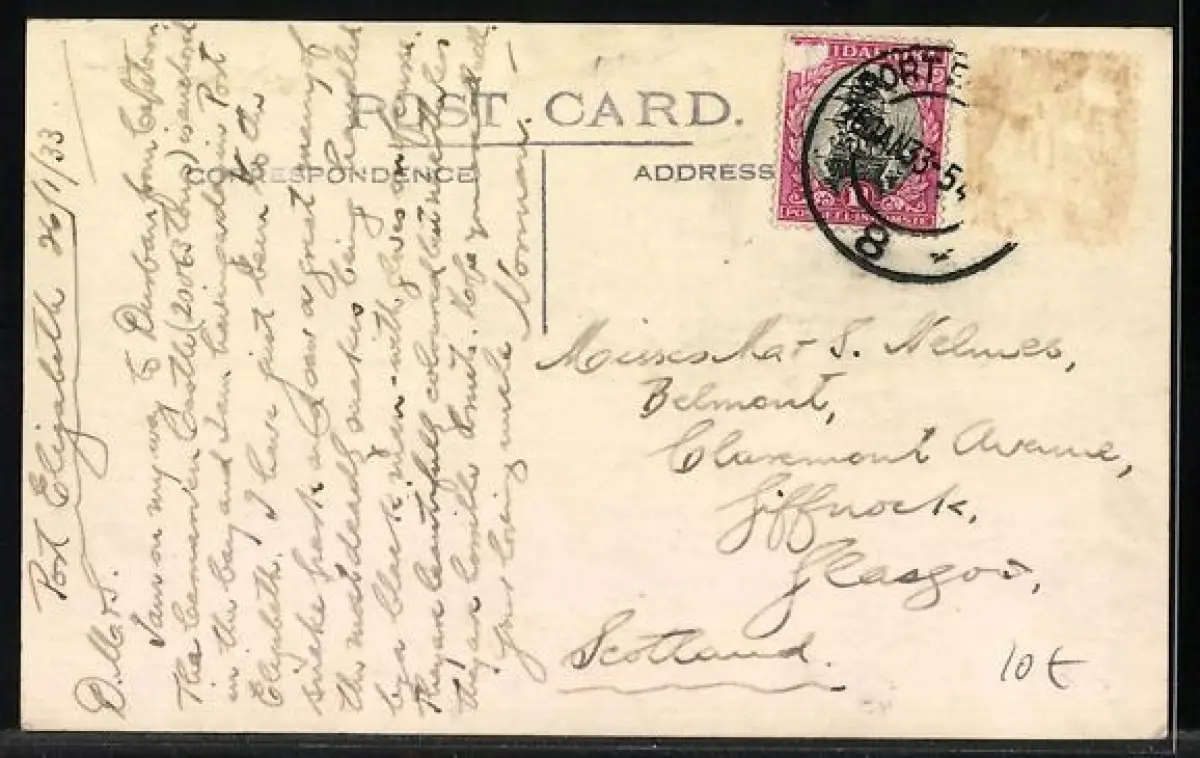 POST CARD.
CORRESPONDENCE
ADDRESS
IDALI
PORT E
26 JAN 33-5
8
Port Elizabeth 26/1/33
D. M & S.
I am on my way to Durban from Capetown.
The Carnarvon Castle (20063 tons) is anchored
in the bay and I am having a day in Port
Elizabeth. I have just been to the
snake park and saw a great many of
the most deadly snakes being handled
by a black man – with gloves on of course.
They are beautifully coloured but nevertheless
they are horrible brutes. Hope you are all well.
Your loving uncle Norman. –
Misses M a + S. Nelmes,
Belmont,
Claremont Avenue,
Giffnock,
Glasgow,
Scotland.
10 t